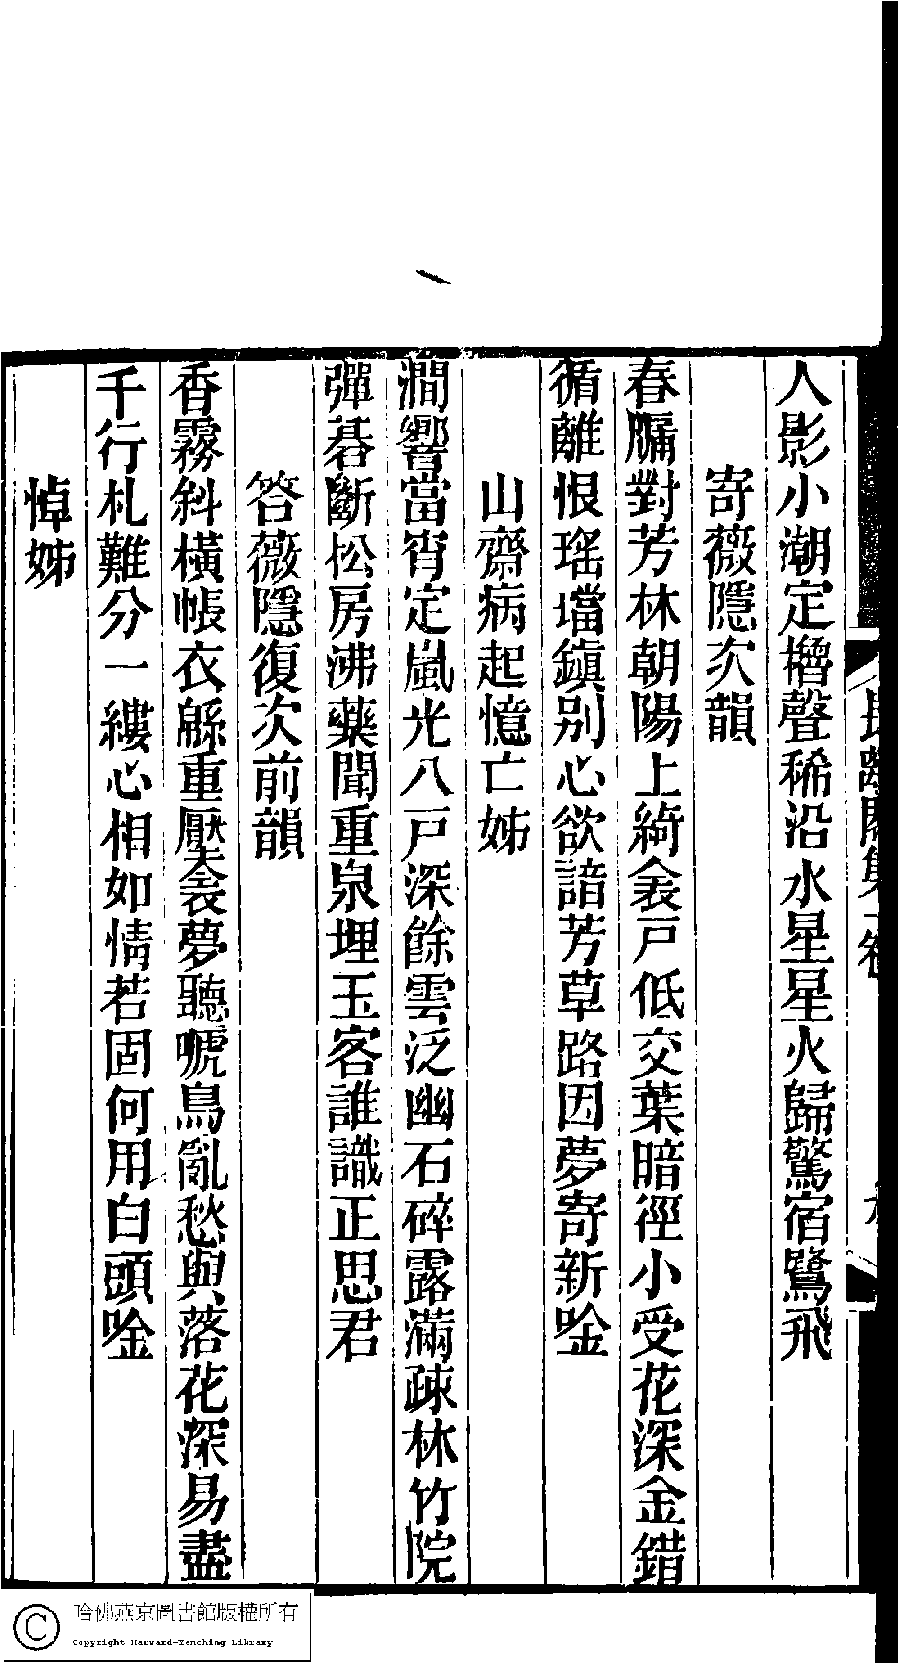 人影小潮定櫓聲稀沿水星星火歸驚宿鷺飛
寄薇隱次韻
春牖對芳林朝陽上綺衾戸低交葉暗徑小受花深金錯
循離恨瑤璫鎭别心欲諳芳草路因夢寄新唫
山齋病起憶亡姊
澗響當宵定嵐光入戸深餘雲泛幽石碎露滿疎林竹院
彈碁斷松房沸藥聞重泉埋玉客誰識正思君
答薇隱復次前韻
香霧斜橫帳衣緜重壓衾夢聽嗁鳥亂愁與落花深易盡
千行札難分一縷心相如情若固何用白頭唫
悼姊
哈佛燕京圖書館版權所有
Copyright Harvard-Yenching Library